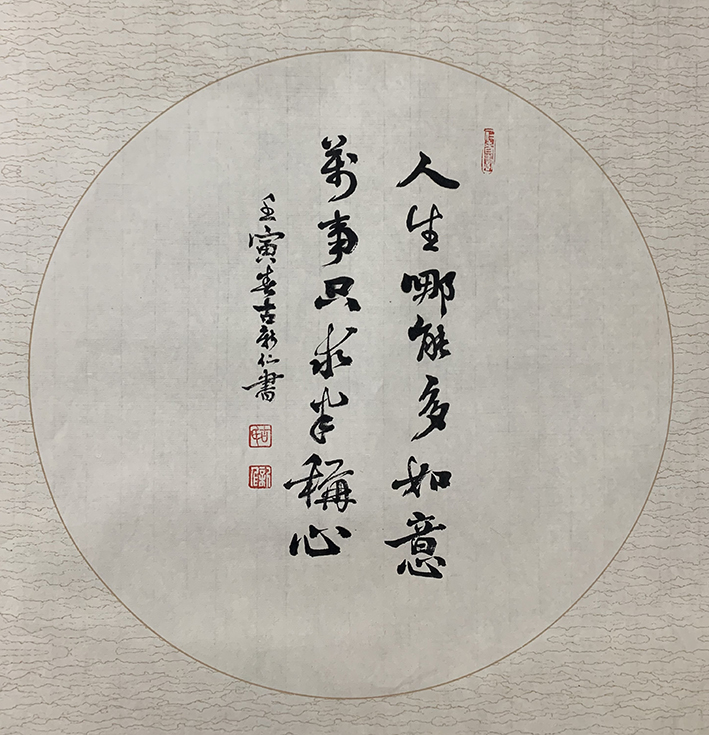 人生哪能多如意
萬事只求半稱心
壬寅春古新仁書